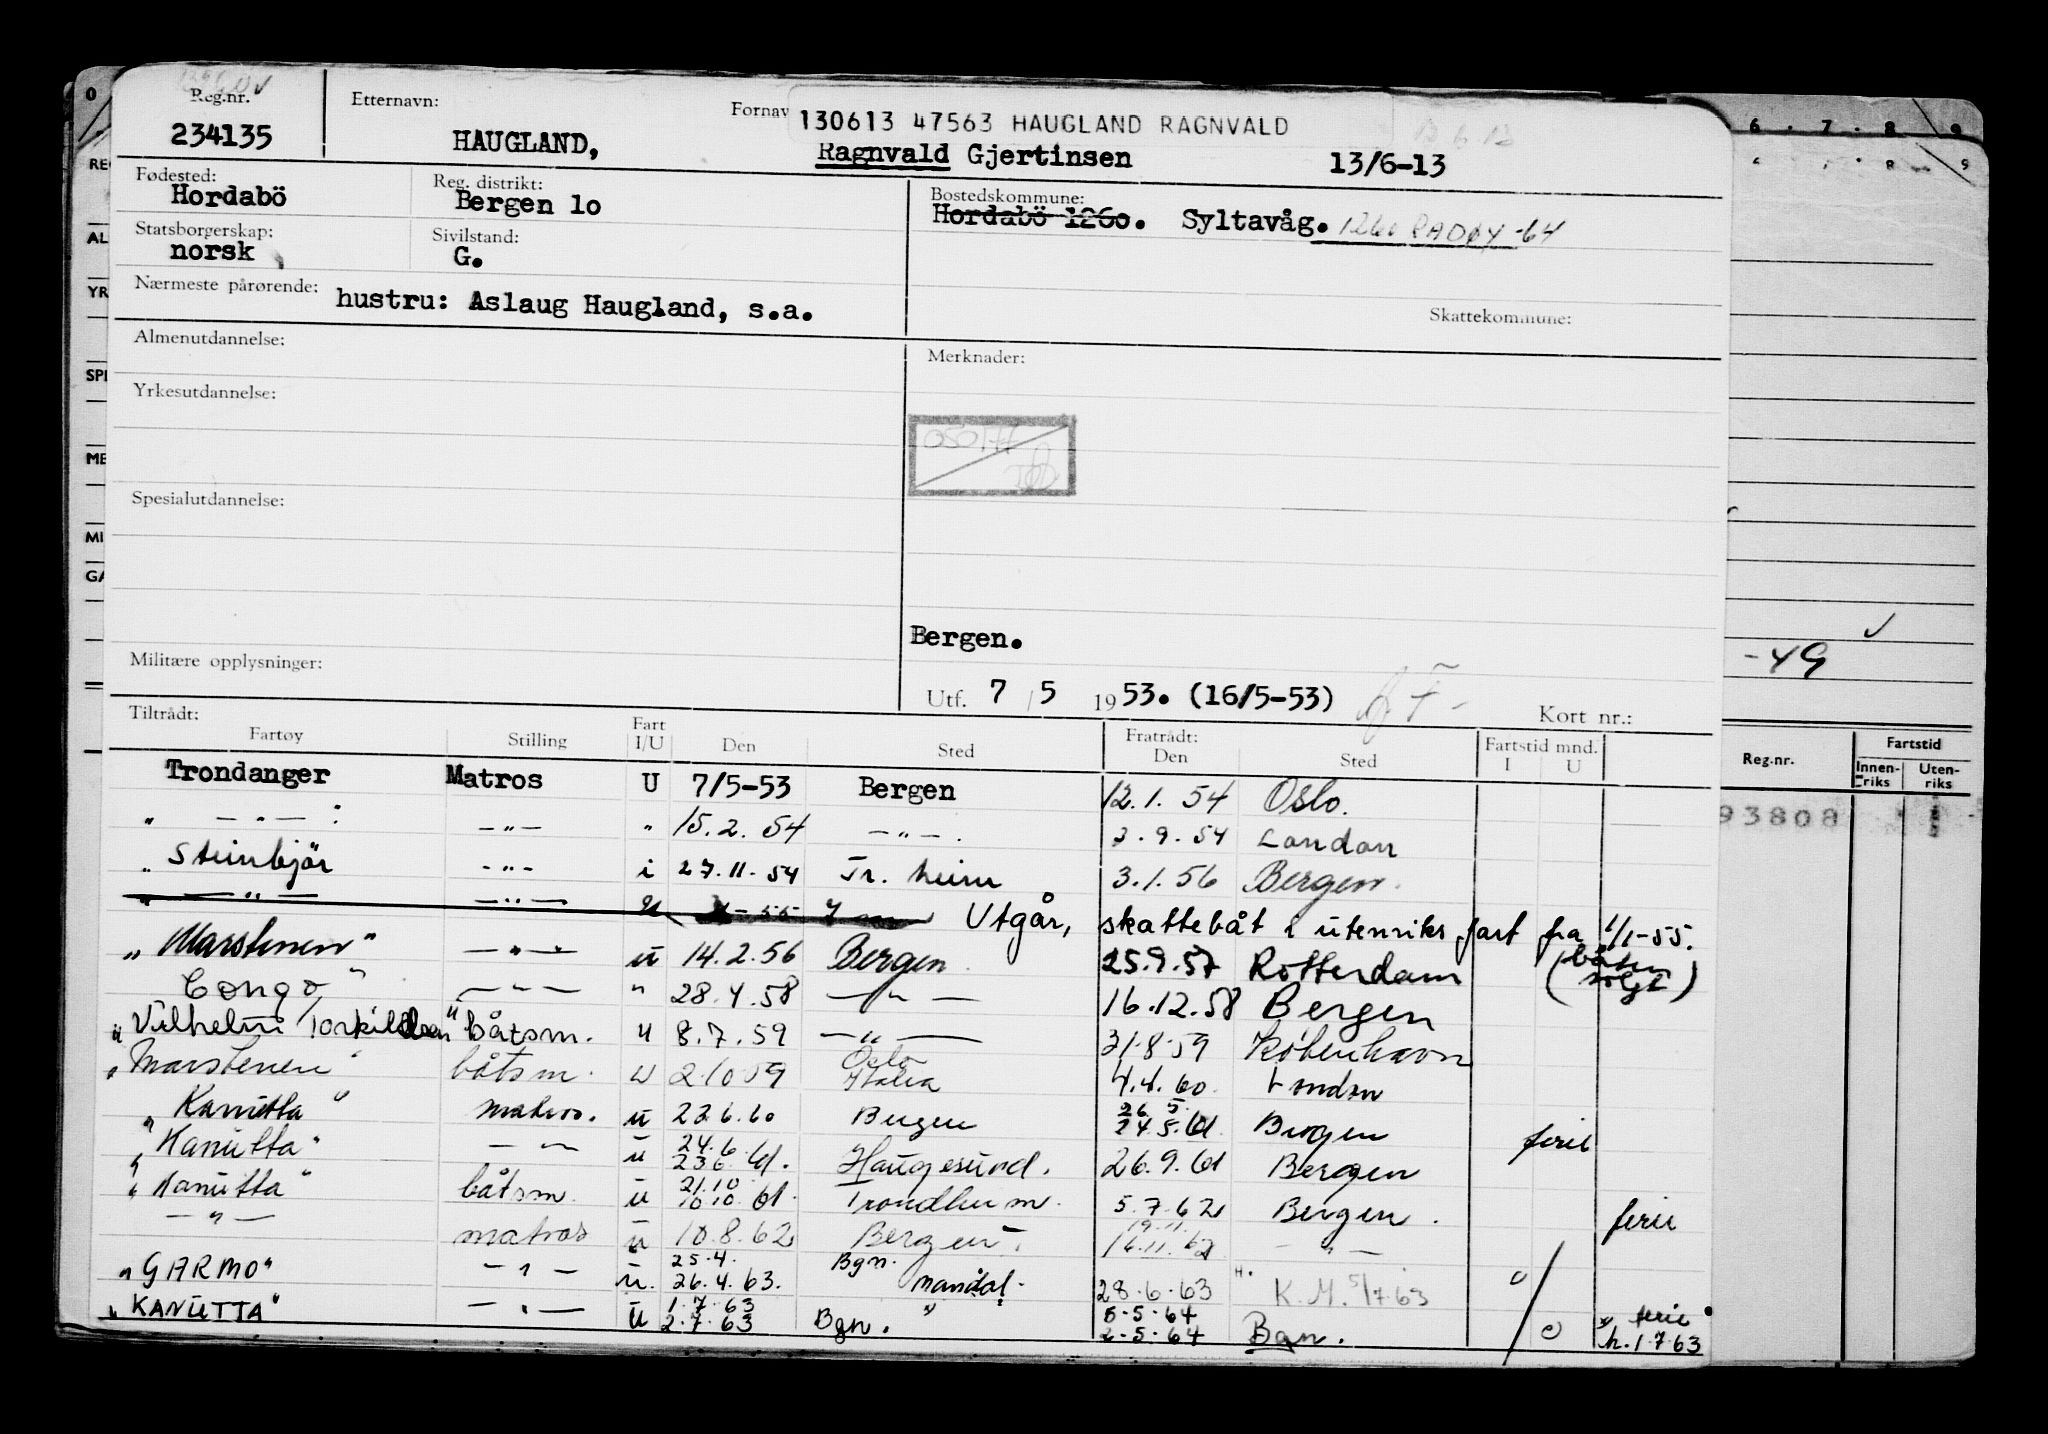 Reg.nr. Etternavn: Fornav 130613 47563 HAUGLAND RAGNVALD
234135 HAUGLAND, Ragnvald Gjertinsen 13/6-13
Fødested: Reg. distrikt: Bostedskommune:
Hordabö Bergen 1o Hordabö 126o. Syltavåg. 1260 RADØY -64
Statsborgerskap: Sivilstand:
norsk G.
Nærmeste pårørende: hustru: Aslaug Haugland, s.a.
Skattekommune:
Almenutdannelse: Merknader:
Yrkesutdannelse:
050177
Spesialutdannelse:
Bergen.
Militære opplysninger:
Utf. 7 / 5 1953. (16/5-53)
Kort nr.:
Tiltrådt: Fart Fratrådt: Fartstid mnd.
Fartøy Stilling I/U Den Sted Den Sted I U
Trondanger Matros U 7/5-53 Bergen 12.1.54 Oslo.
„ — „ — : — „ — „ 15.2.54 — „ — . 3.9.54 London
„ Steinbjör — „ — i 27.11.54 Tr.heim 3.1.56 Bergen.
„ — „ — — „ — U -55 Utgår, skattebåt i utenriks fart fra 1/1-55.
„ Marstenen" — „ — u 14.2.56 Bergen 25.9.57 Rotterdam (båten solgt)
Congo" — „ — " 28.4.58 — „ — 16.12.58 Bergen
"Vilhelm Torkildsen" båtsm. u 8.7.59 — „ — 31.8.59 København
„ Marstenen" båtsm. u 2.10.59 Oslo Italia 4.4.60 London
„ Kanutta" matros. u 22.6.60 Bergen 26.5. 24.5.61 Bergen ferie
„ Kanutta" — „ — u 24.6 23.6.61. Haugesund. 26.9.61 Bergen
„ Kanutta" båtsm. u 21.10 10.10.61. Trondheim. 5.7.62 Bergen. ferie
— „ — matros u 10.8.62 Bergen. 19.11. 16.11.62 — „ —
„ GARMO" — „ — u. 25.4. 26.4.63. Bgn. Mandal. 28.6.63 K.M. 5/7 63
„ KANUTTA" — „ — U 1.7.63 2.7.63 Bgn. " 5-5-64 2-5-64 Bgn. ferie h. 1.7.63
6 . 7 . 8 . 9
-49
Reg.nr. Fartstid
Innenriks Utenriks
93808